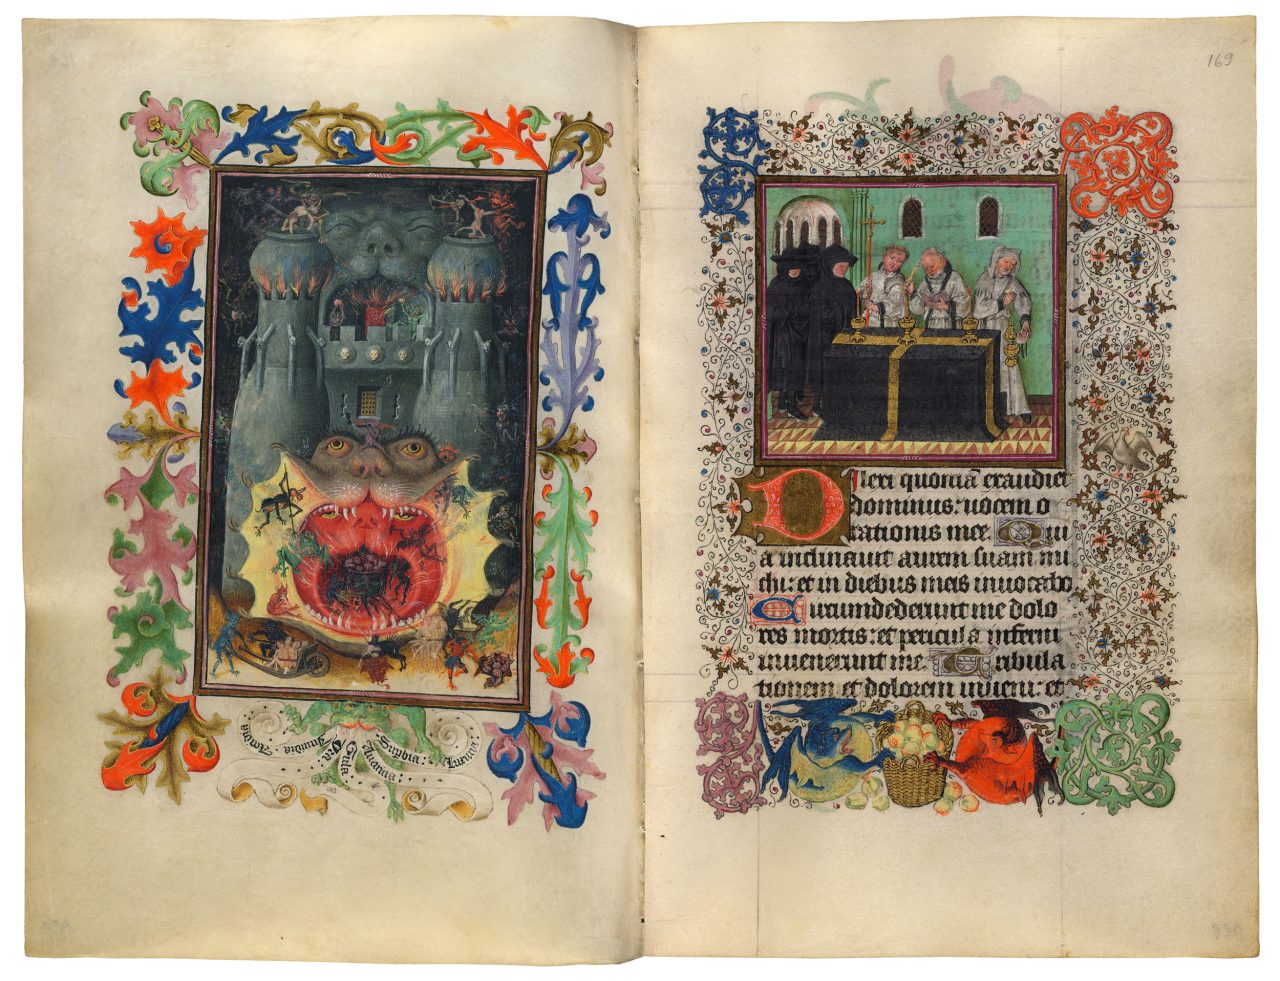 Accidia . Inuidia . Ira . Gula . Auaricia : Supbia : Luxuria
169
Dilexi quoniā exaudiet
dominus: uocem o
rationis mee. Qui
a inclinauit aurem suam mi
chi: et in diebus meis inuocabo
Circumdederunt me dolo
res mortis: et pericula inferni
inuenerunt me. Tribula
tionem et dolorem inueni: et